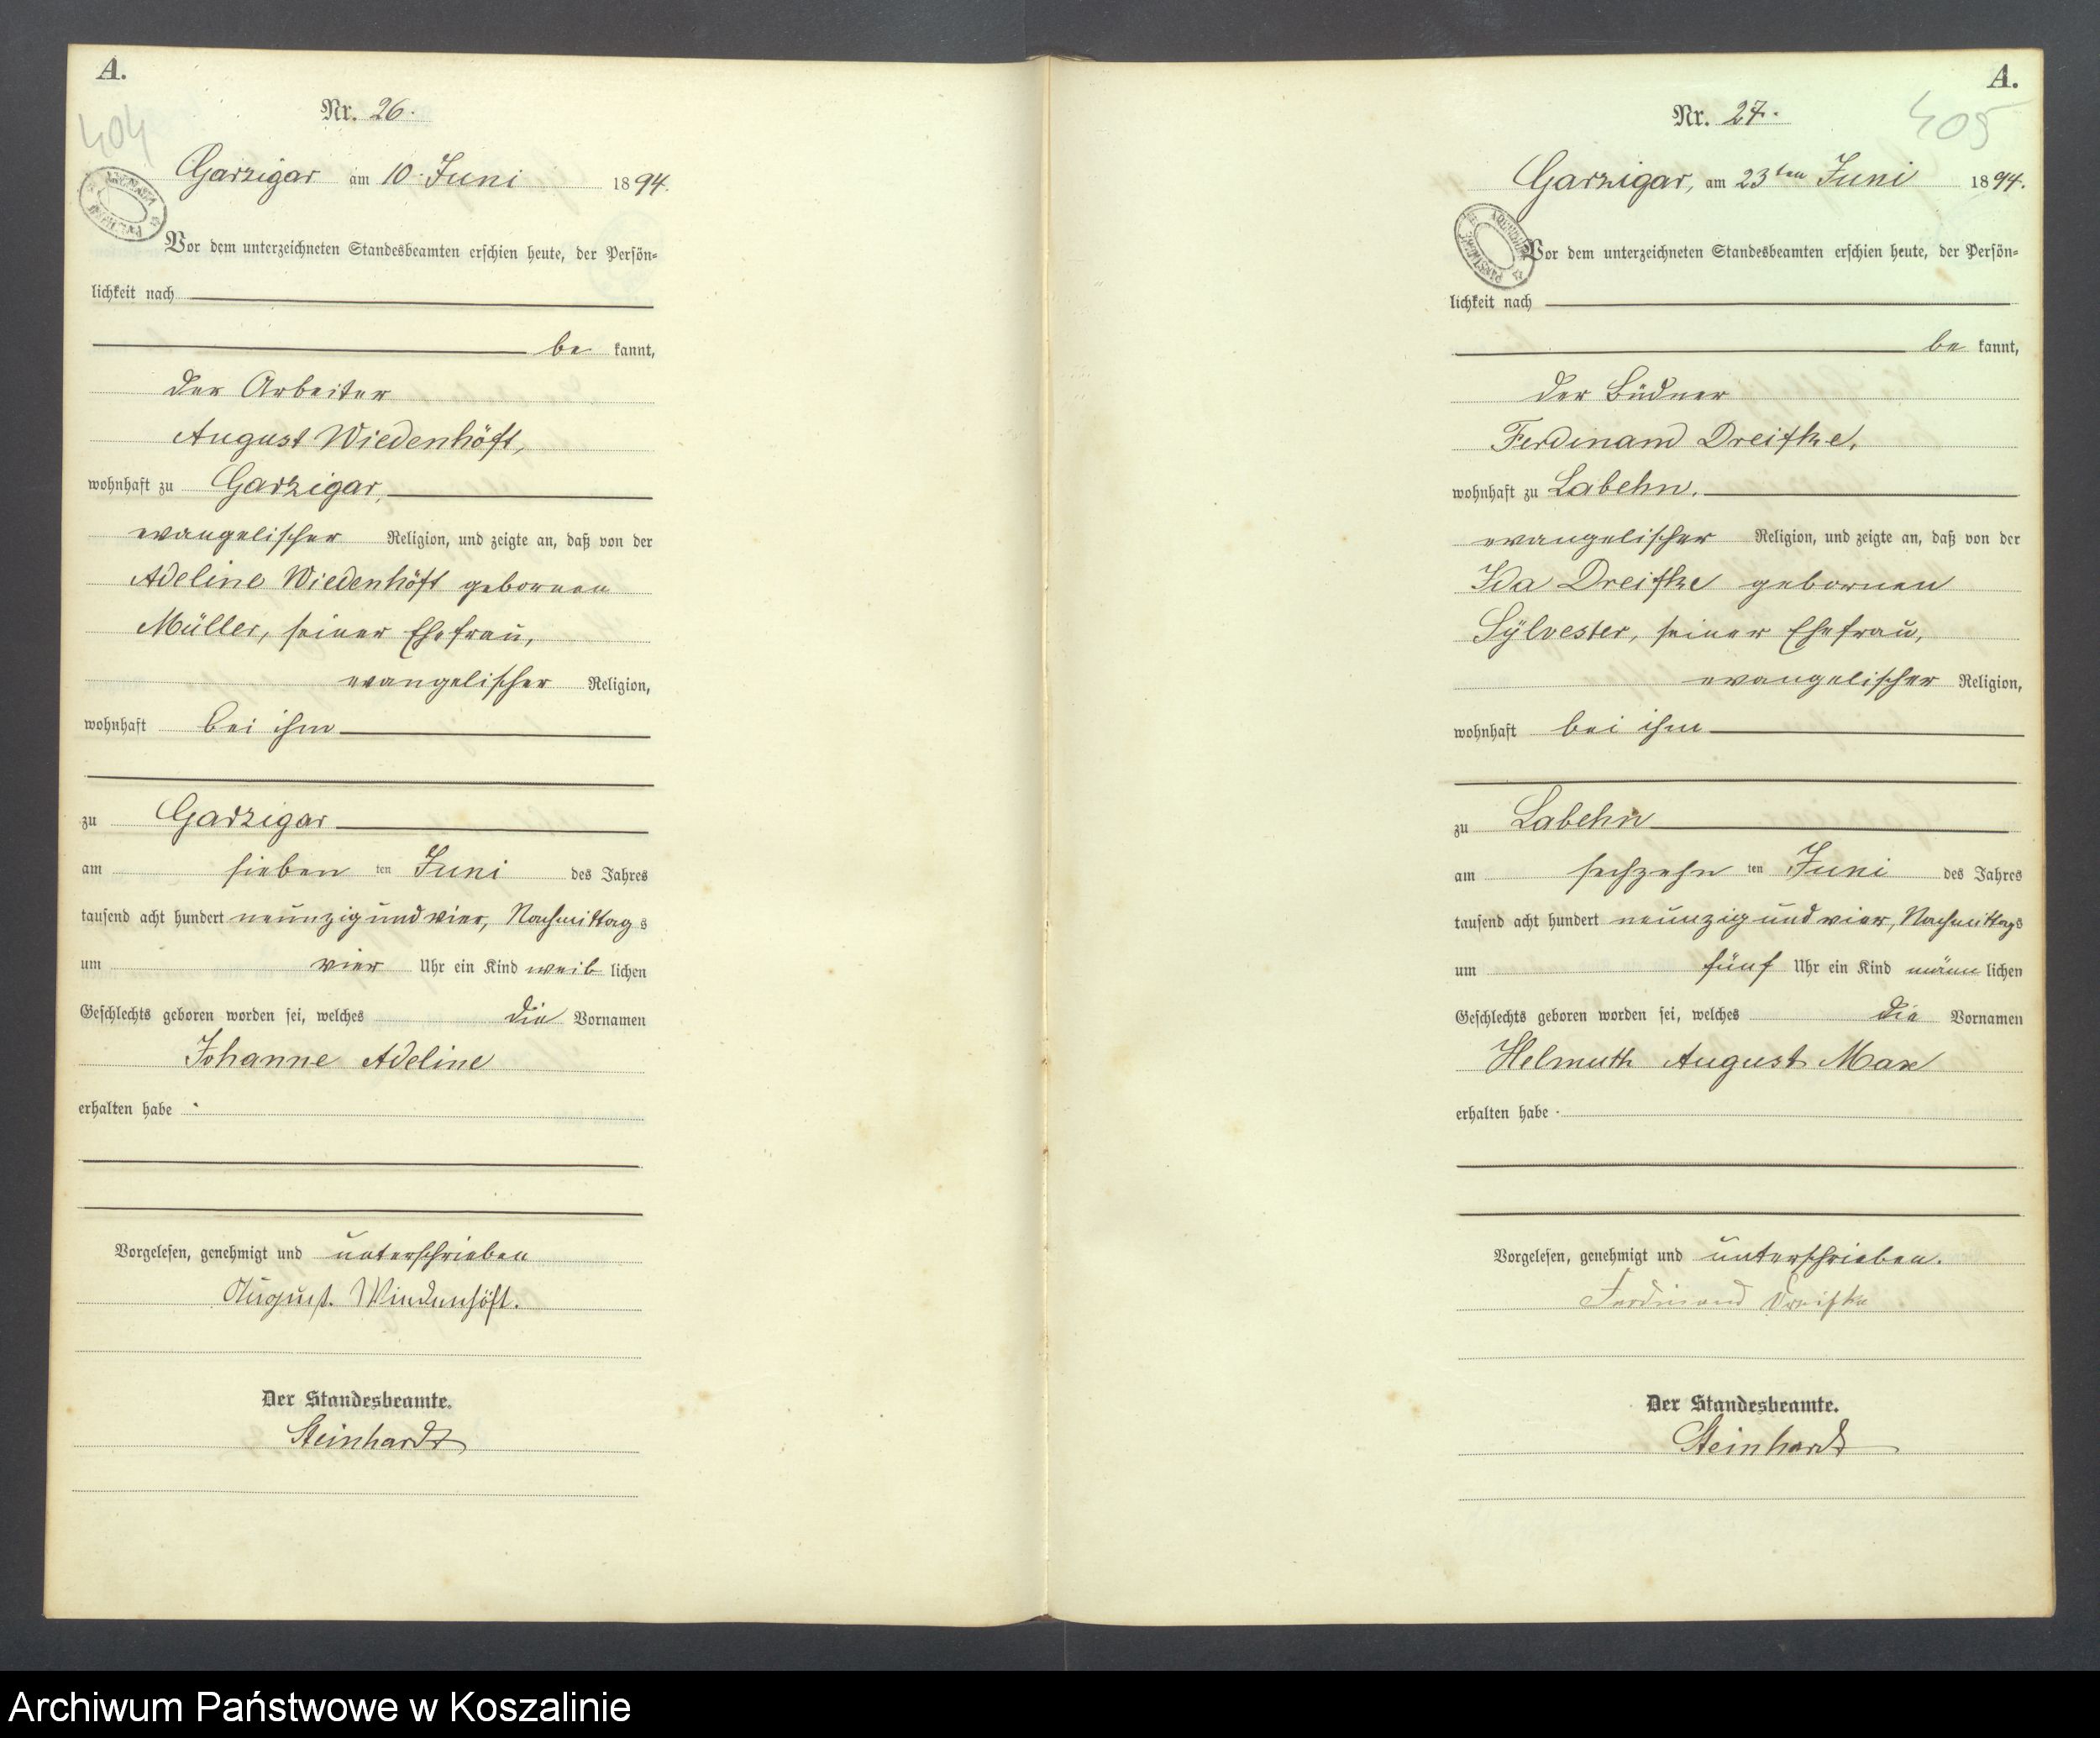 A.
404
Nr. 26.
Garzigar am 10. Juni 1894.
Vor dem unterzeichneten Standesbeamten erschien heute, der Persön-
lichkeit nach
be kannt,
der Arbeiter
August Wiedenhöft,
wohnhaft zu Garzigar,
evangelischer Religion, und zeigte an, daß von der
Adeline Wiedenhöft gebornen
Müller, seiner Ehefrau,
evangelischer Religion,
wohnhaft bei ihm
zu Garzigar
am sieben ten Juni des Jahres
tausend acht hundert neunzig und vier, Nachmittag s
um vier Uhr ein Kind weib lichen
Geschlechts geboren worden sei, welches die Vornamen
Johanne Adeline
erhalten habe.
Vorgelesen, genehmigt und unterschrieben
August. Wiedenhöft.
Der Standesbeamte.
Steinhardt
A.
405
Nr. 27.
Garzigar, am 23ten Juni 1894.
Vor dem unterzeichneten Standesbeamten erschien heute, der Persön-
lichkeit nach
be kannt,
der Büdner
Ferdinand Dreifke,
wohnhaft zu Labehn,
evangelischer Religion, und zeigte an, daß von der
Ida Dreifke gebornen
Sÿlvester, seiner Ehefrau,
evangelischer Religion,
wohnhaft bei ihm
zu Labehn
am sechzehn ten Juni des Jahres
tausend acht hundert neunzig und vier, Nachmittags
um fünf Uhr ein Kind männ lichen
Geschlechts geboren worden sei, welches die Vornamen
Helmuth August Max
erhalten habe.
Vorgelesen, genehmigt und unterschrieben.
Ferdinand Dreifke
Der Standesbeamte.
Steinhardt
Archiwum Państwowe w Koszalinie